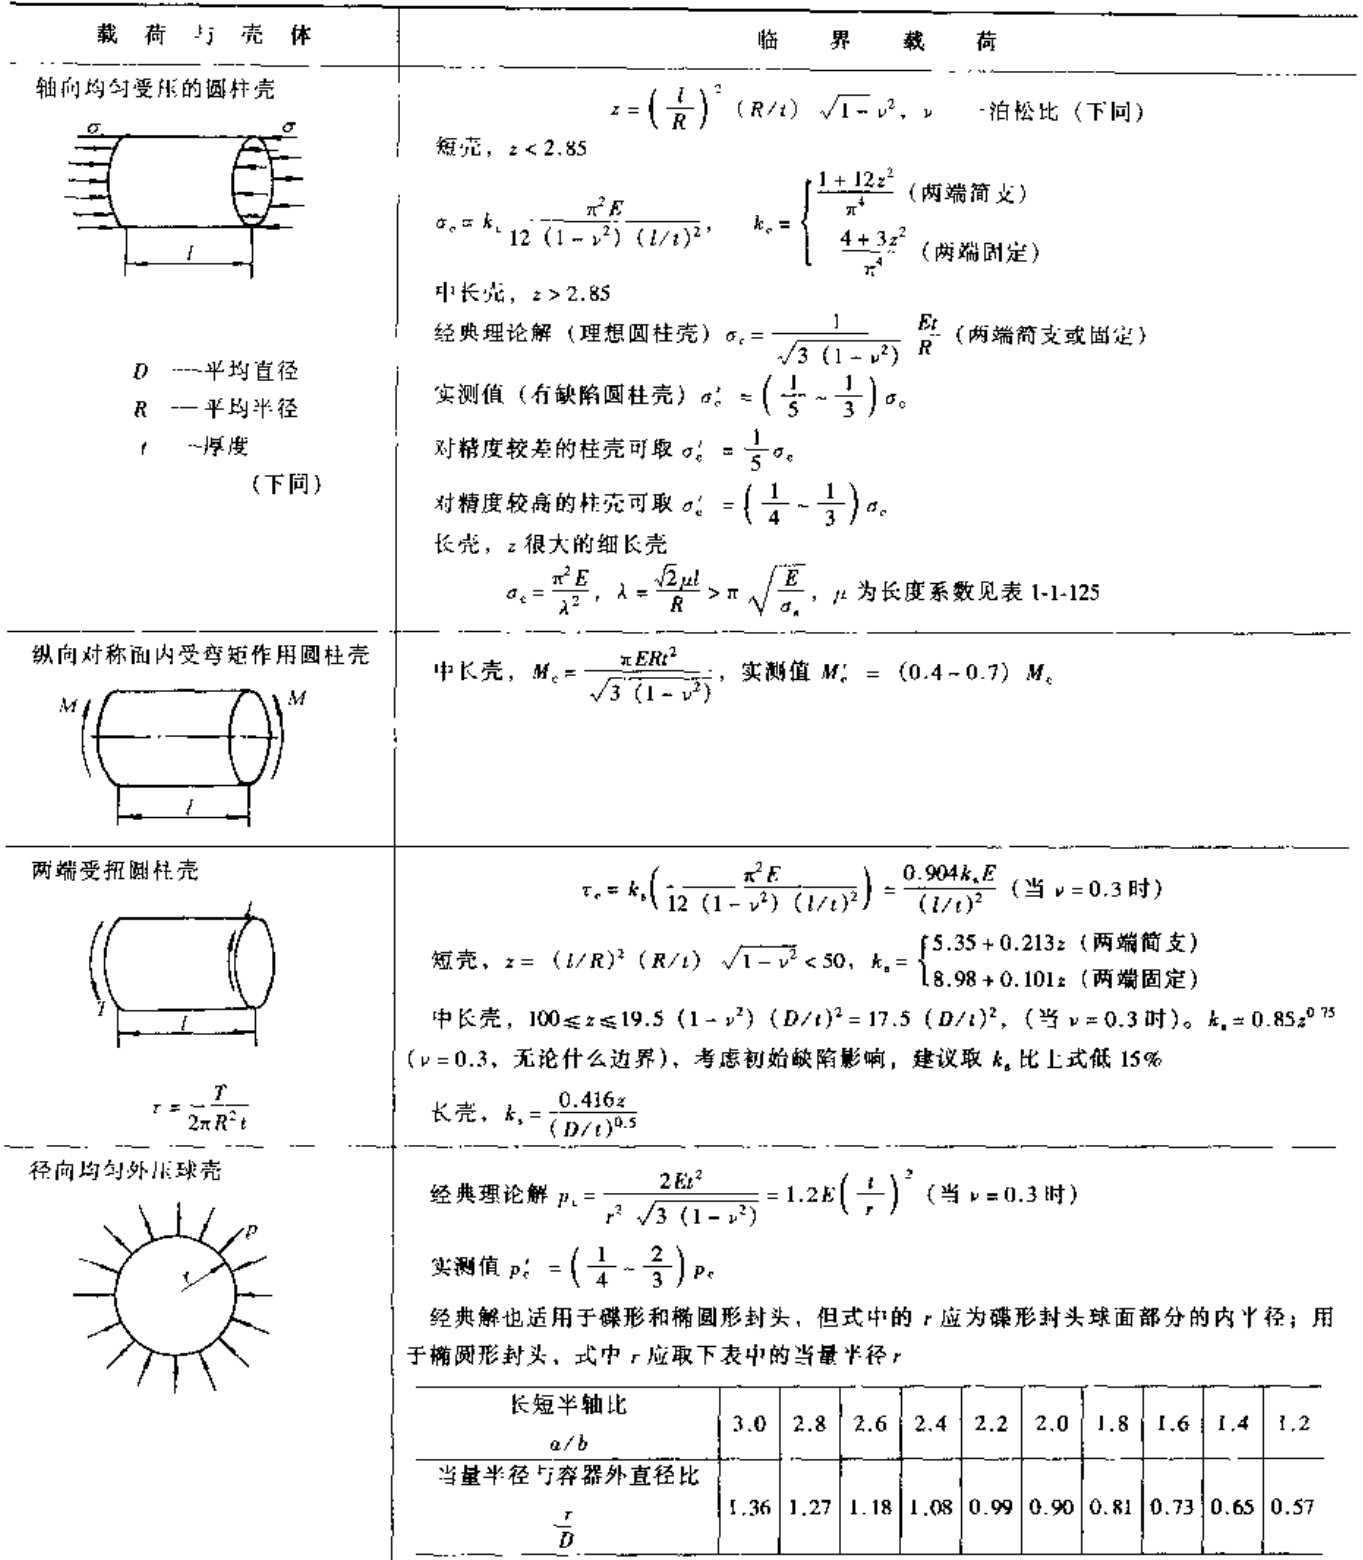 载荷与壳体 临界载荷
轴向均匀受压的圆柱壳
σ σ
l
D ——平均直径
R ——平均半径
t ——厚度
(下同)
z = (l/R)² (R/t) √(1-ν²), ν ——泊松比 (下同)
短壳, z < 2.85
σc = kc π²E / [12 (1-ν²) (l/t)²], kc = { (1+12z²)/π⁴ (两端简支)
(4+3z²)/π⁴ (两端固定)
中长壳, z > 2.85
经典理论解 (理想圆柱壳) σc = 1/√(3 (1-ν²)) Et/R (两端简支或固定)
实测值 (有缺陷圆柱壳) σc′ = (1/5 ~ 1/3) σc
对精度较差的柱壳可取 σc′ = 1/5 σc
对精度较高的柱壳可取 σc′ = (1/4 ~ 1/3) σc
长壳, z 很大的细长壳
σc = π²E/λ², λ = √2μl/R > π √(E/σs), μ 为长度系数见表 1-1-125
纵向对称面内受弯矩作用圆柱壳
M M
l
中长壳, Mc = πERt²/√(3 (1-ν²)), 实测值 Mc′ = (0.4~0.7) Mc
两端受扭圆柱壳
T
l
τ = T/(2πR²t)
τc = ks (π²E / [12 (1-ν²) (l/t)²]) = 0.904ksE/(l/t)² (当 ν = 0.3 时)
短壳, z = (l/R)² (R/t) √(1-ν²) < 50, ks = { 5.35 + 0.213z (两端简支)
8.98 + 0.101z (两端固定)
中长壳, 100 ≤ z ≤ 19.5 (1-ν²) (D/t)² = 17.5 (D/t)², (当 ν = 0.3 时)。ks = 0.85z^0.75
(ν = 0.3, 无论什么边界), 考虑初始缺陷影响, 建议取 ks 比上式低 15%
长壳, ks = 0.416z/(D/t)^0.5
径向均匀外压球壳
p
r
经典理论解 pc = 2Et²/(r² √(3 (1-ν²))) = 1.2E (t/r)² (当 ν = 0.3 时)
实测值 pc′ = (1/4 ~ 2/3) pc
经典解也适用于碟形和椭圆形封头, 但式中的 r 应为碟形封头球面部分的内半径; 用
于椭圆形封头, 式中 r 应取下表中的当量半径 r
长短半轴比 a/b 3.0 2.8 2.6 2.4 2.2 2.0 1.8 1.6 1.4 1.2
当量半径与容器外直径比 r/D 1.36 1.27 1.18 1.08 0.99 0.90 0.81 0.73 0.65 0.57